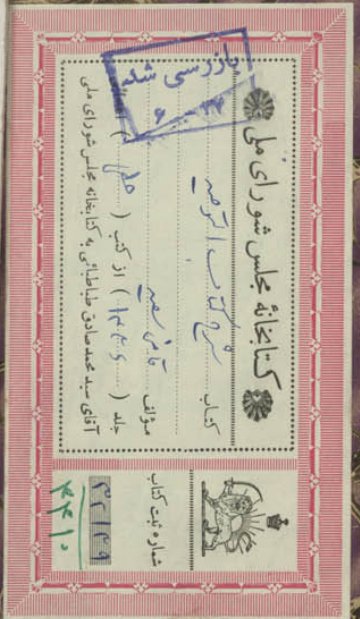 بازرسی شد
۳۶ ۶
کتابخانهٔ مجلس شورای ملی
کتاب شرح کتاب التوحید
مؤلف قاضی سعید
جلد ( ۱۳۴۶ ) از کتب ( خطی )
آقای سید محمد صادق طباطبائی به کتابخانه مجلس شورای ملی
شماره ثبت کتاب
۳۲۱۴۹
۴۴۱۰